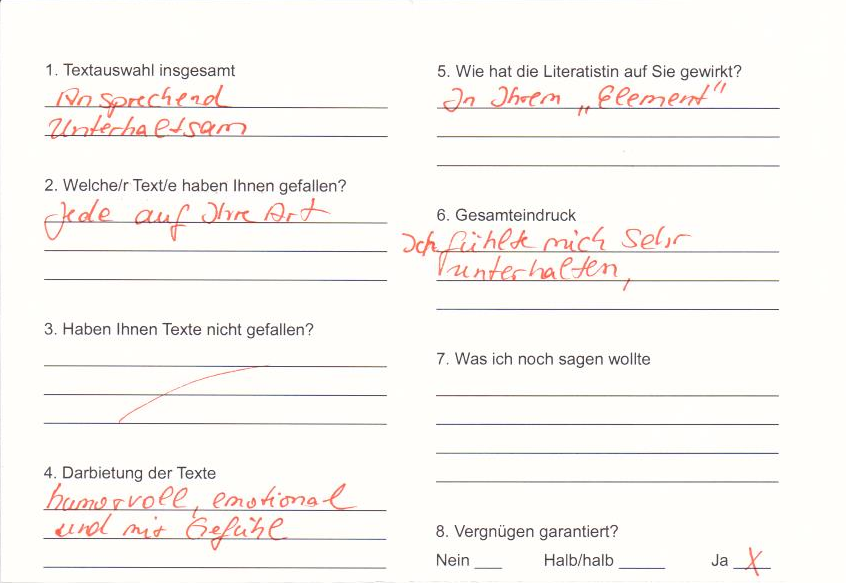 1. Textauswahl insgesamt
Ansprechend
Unterhaltsam
2. Welche/r Text/e haben Ihnen gefallen?
Jede auf Ihre Art
3. Haben Ihnen Texte nicht gefallen?
4. Darbietung der Texte
humorvoll, emotional
und mit Gefühl
5. Wie hat die Literatistin auf Sie gewirkt?
In Ihrem „Element"
6. Gesamteindruck
Ich fühlte mich Sehr
unterhalten,
7. Was ich noch sagen wollte
8. Vergnügen garantiert?
Nein ___ Halb/halb _____ Ja X